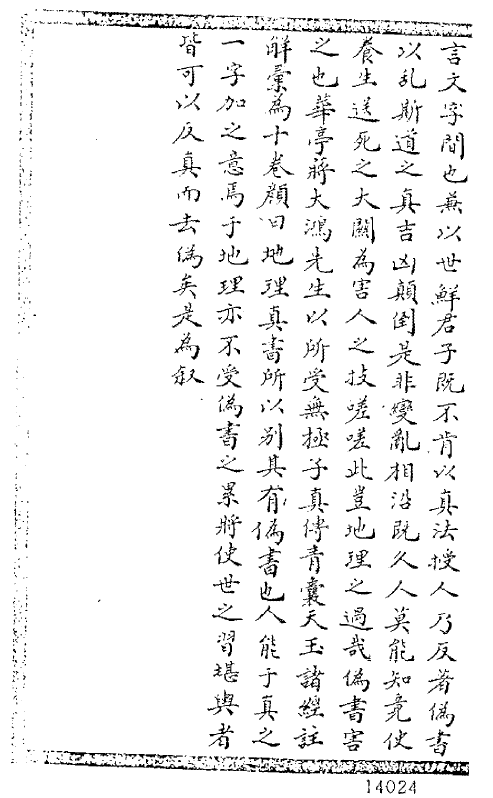 言文字間也兼以世鮮君子既不肯以真法授人乃反著偽書
以乱斯道之真吉凶顛倒是非變亂相沿既久人莫能知竟使
養生送死之大關為害人之技嗟嗟此豈地理之過哉偽書害
之也華亭蔣大鴻先生以所受無極子真傳青囊天玉諸經註
解彙為十卷顏曰地理真書所以别其有偽書也人能于真之
一字加之意焉于地理亦不受偽書之累將使世之習堪輿者
皆可以反真而去偽矣是為叙
14024